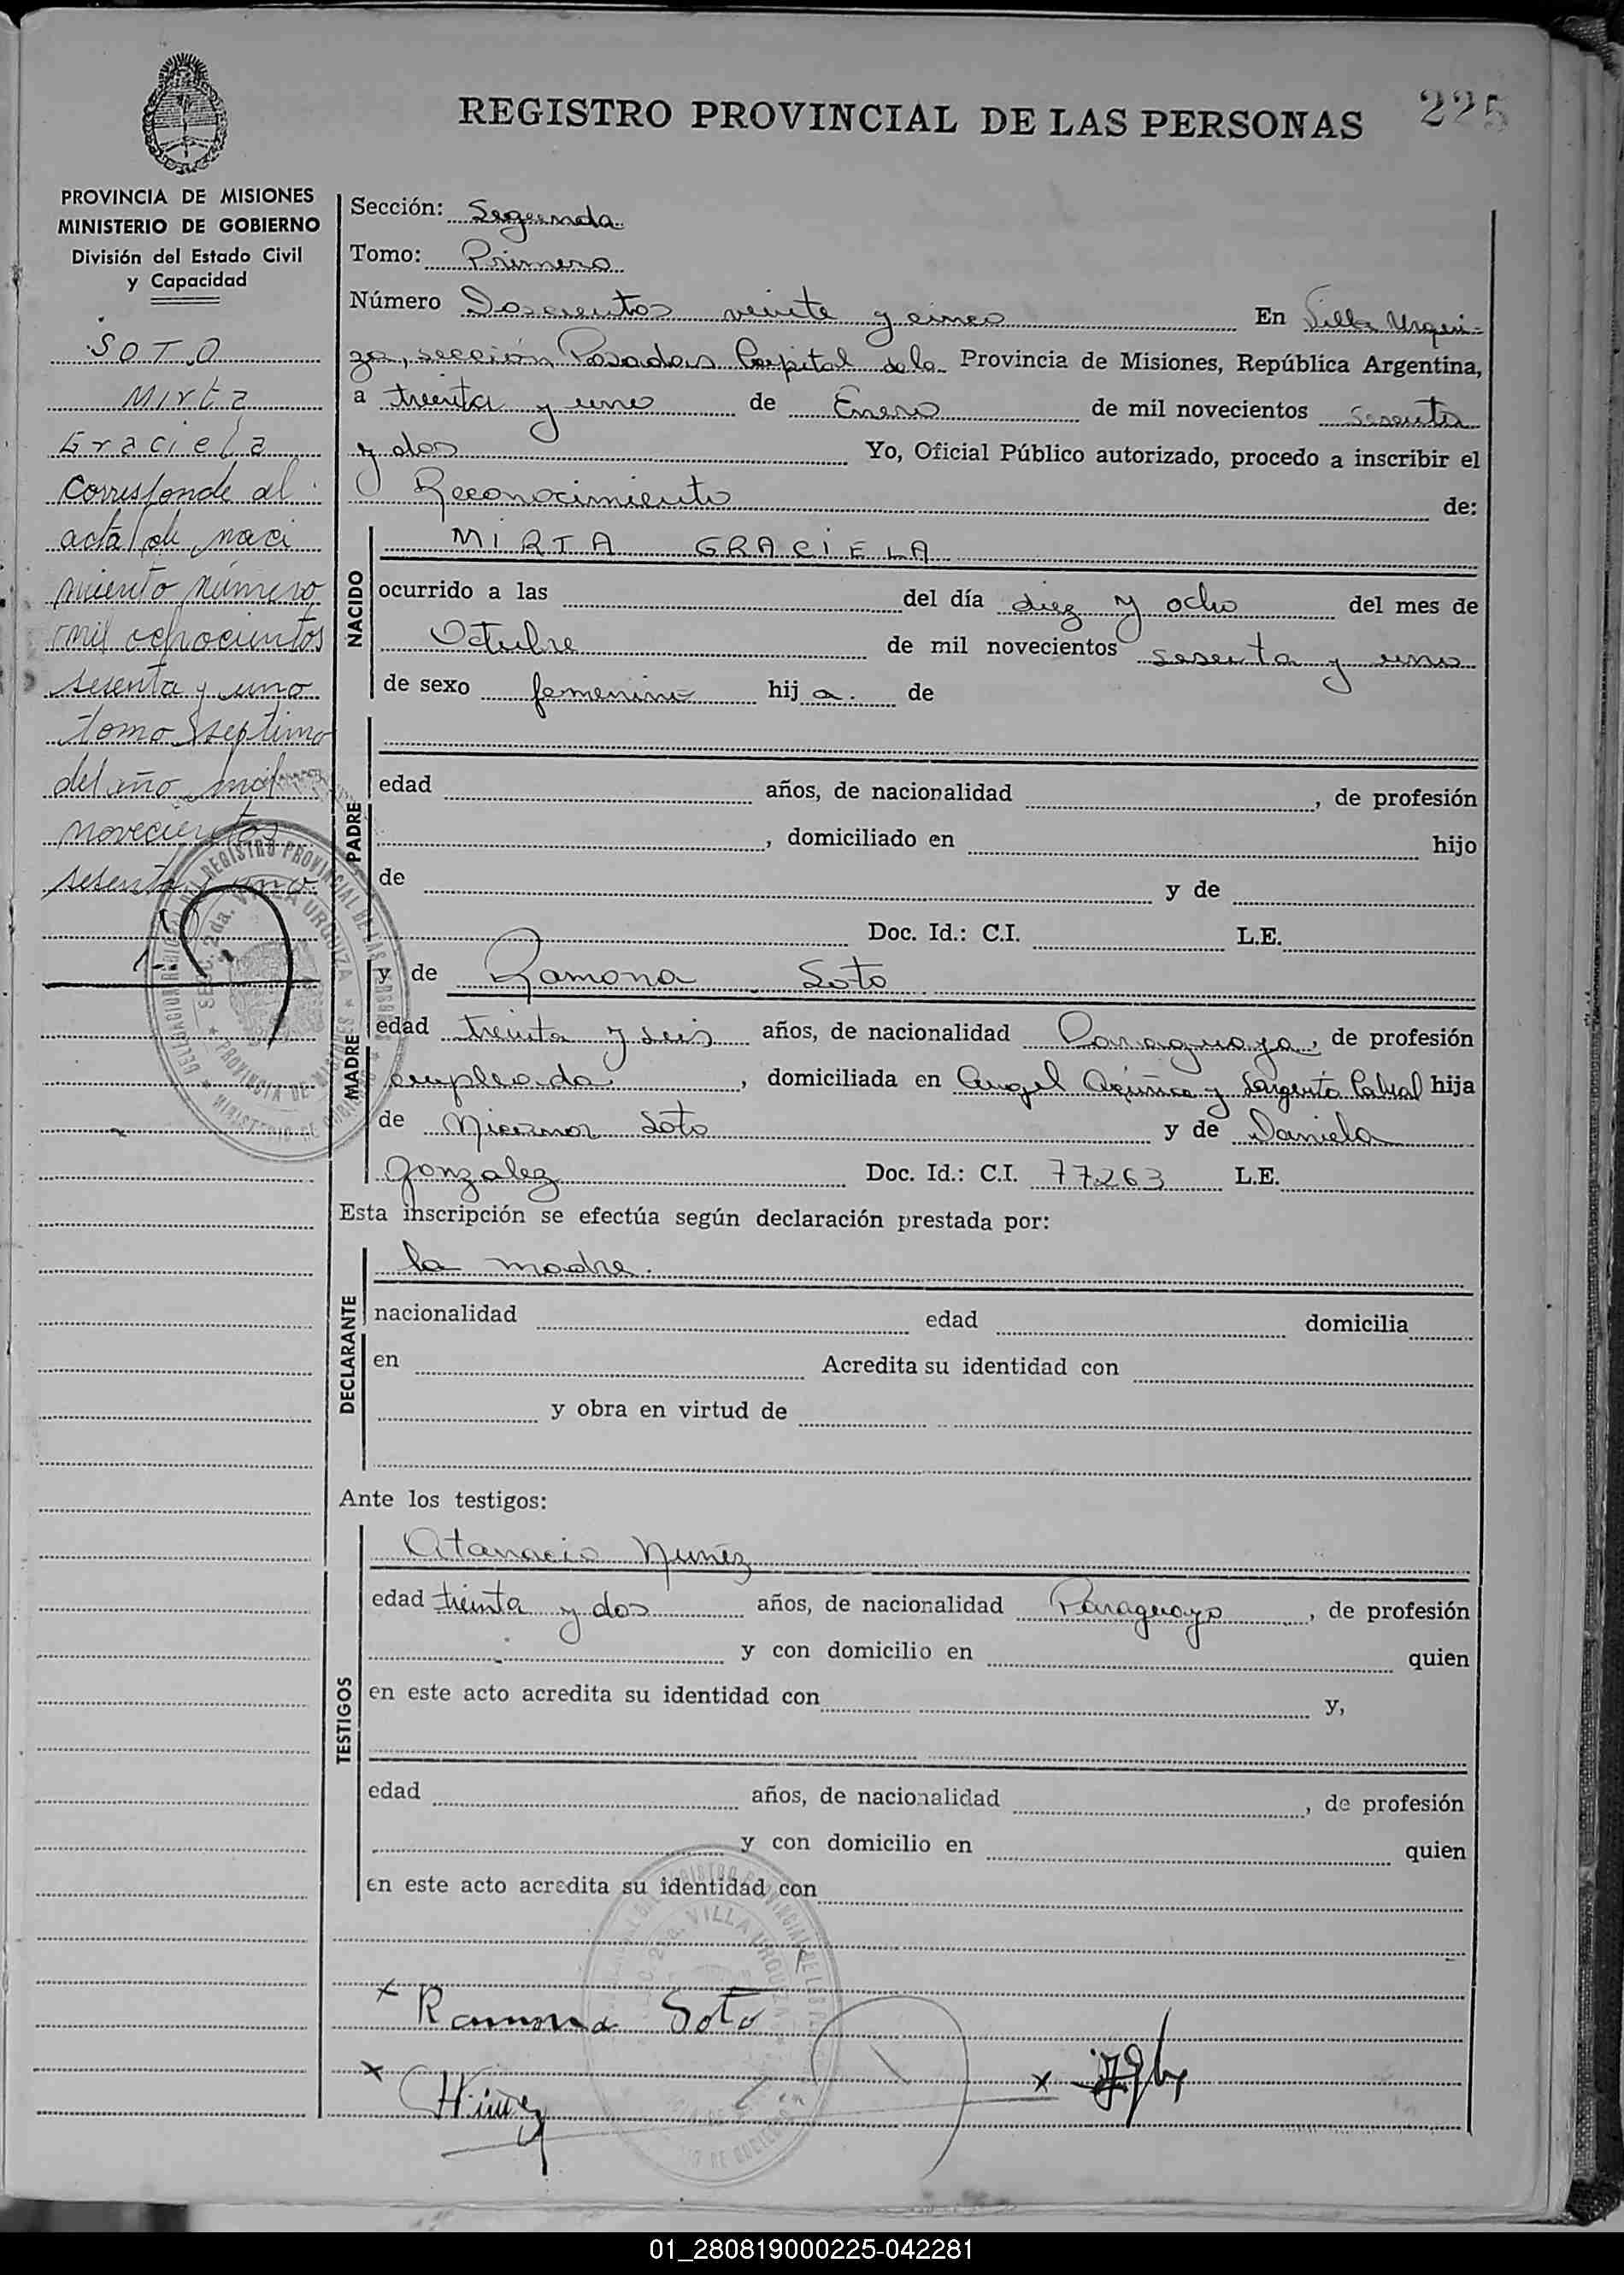 REGISTRO PROVINCIAL DE LAS PERSONAS 225
PROVINCIA DE MISIONES
MINISTERIO DE GOBIERNO
División del Estado Civil
y Capacidad
SOTO
Mirta
Graciela
Corresponde al
acta de naci
miento número
mil ochocientos
sesenta y uno
tomo septimo
del año mil
novecientos
sesenta y uno
Sección: Segunda
Tomo: Primero
Número Doscientos veinte y cinco En Villa Urqui-
za, sección Posadas Capital de la Provincia de Misiones, República Argentina,
a treinta y uno de Enero de mil novecientos sesenta
y dos Yo, Oficial Público autorizado, procedo a inscribir el
Reconocimiento de:
NACIDO
MIRTA GRACIELA
ocurrido a las del día diez y ocho del mes de
Octubre de mil novecientos sesenta y uno
de sexo femenino hija de
PADRE
edad años, de nacionalidad , de profesión
, domiciliado en hijo
de y de
Doc. Id.: C.I. L.E.
MADRE
y de Ramona Soto
edad treinta y seis años, de nacionalidad Paraguaya, de profesión
empleada, domiciliada en Angel Acuña y Sargento Cabral hija
de Nicanor Soto y de Daniela
Gonzalez Doc. Id.: C.I. 77263 L.E.
Esta inscripción se efectúa según declaración prestada por:
DECLARANTE
la madre.
nacionalidad edad domicilia
en Acredita su identidad con
y obra en virtud de
Ante los testigos:
TESTIGOS
Atanacio Nuñez
edad treinta y dos años, de nacionalidad Paraguayo, de profesión
y con domicilio en quien
en este acto acredita su identidad con y,
edad años, de nacionalidad , de profesión
y con domicilio en quien
en este acto acredita su identidad con
x Ramona Soto
x
x
01_280819000225-042281